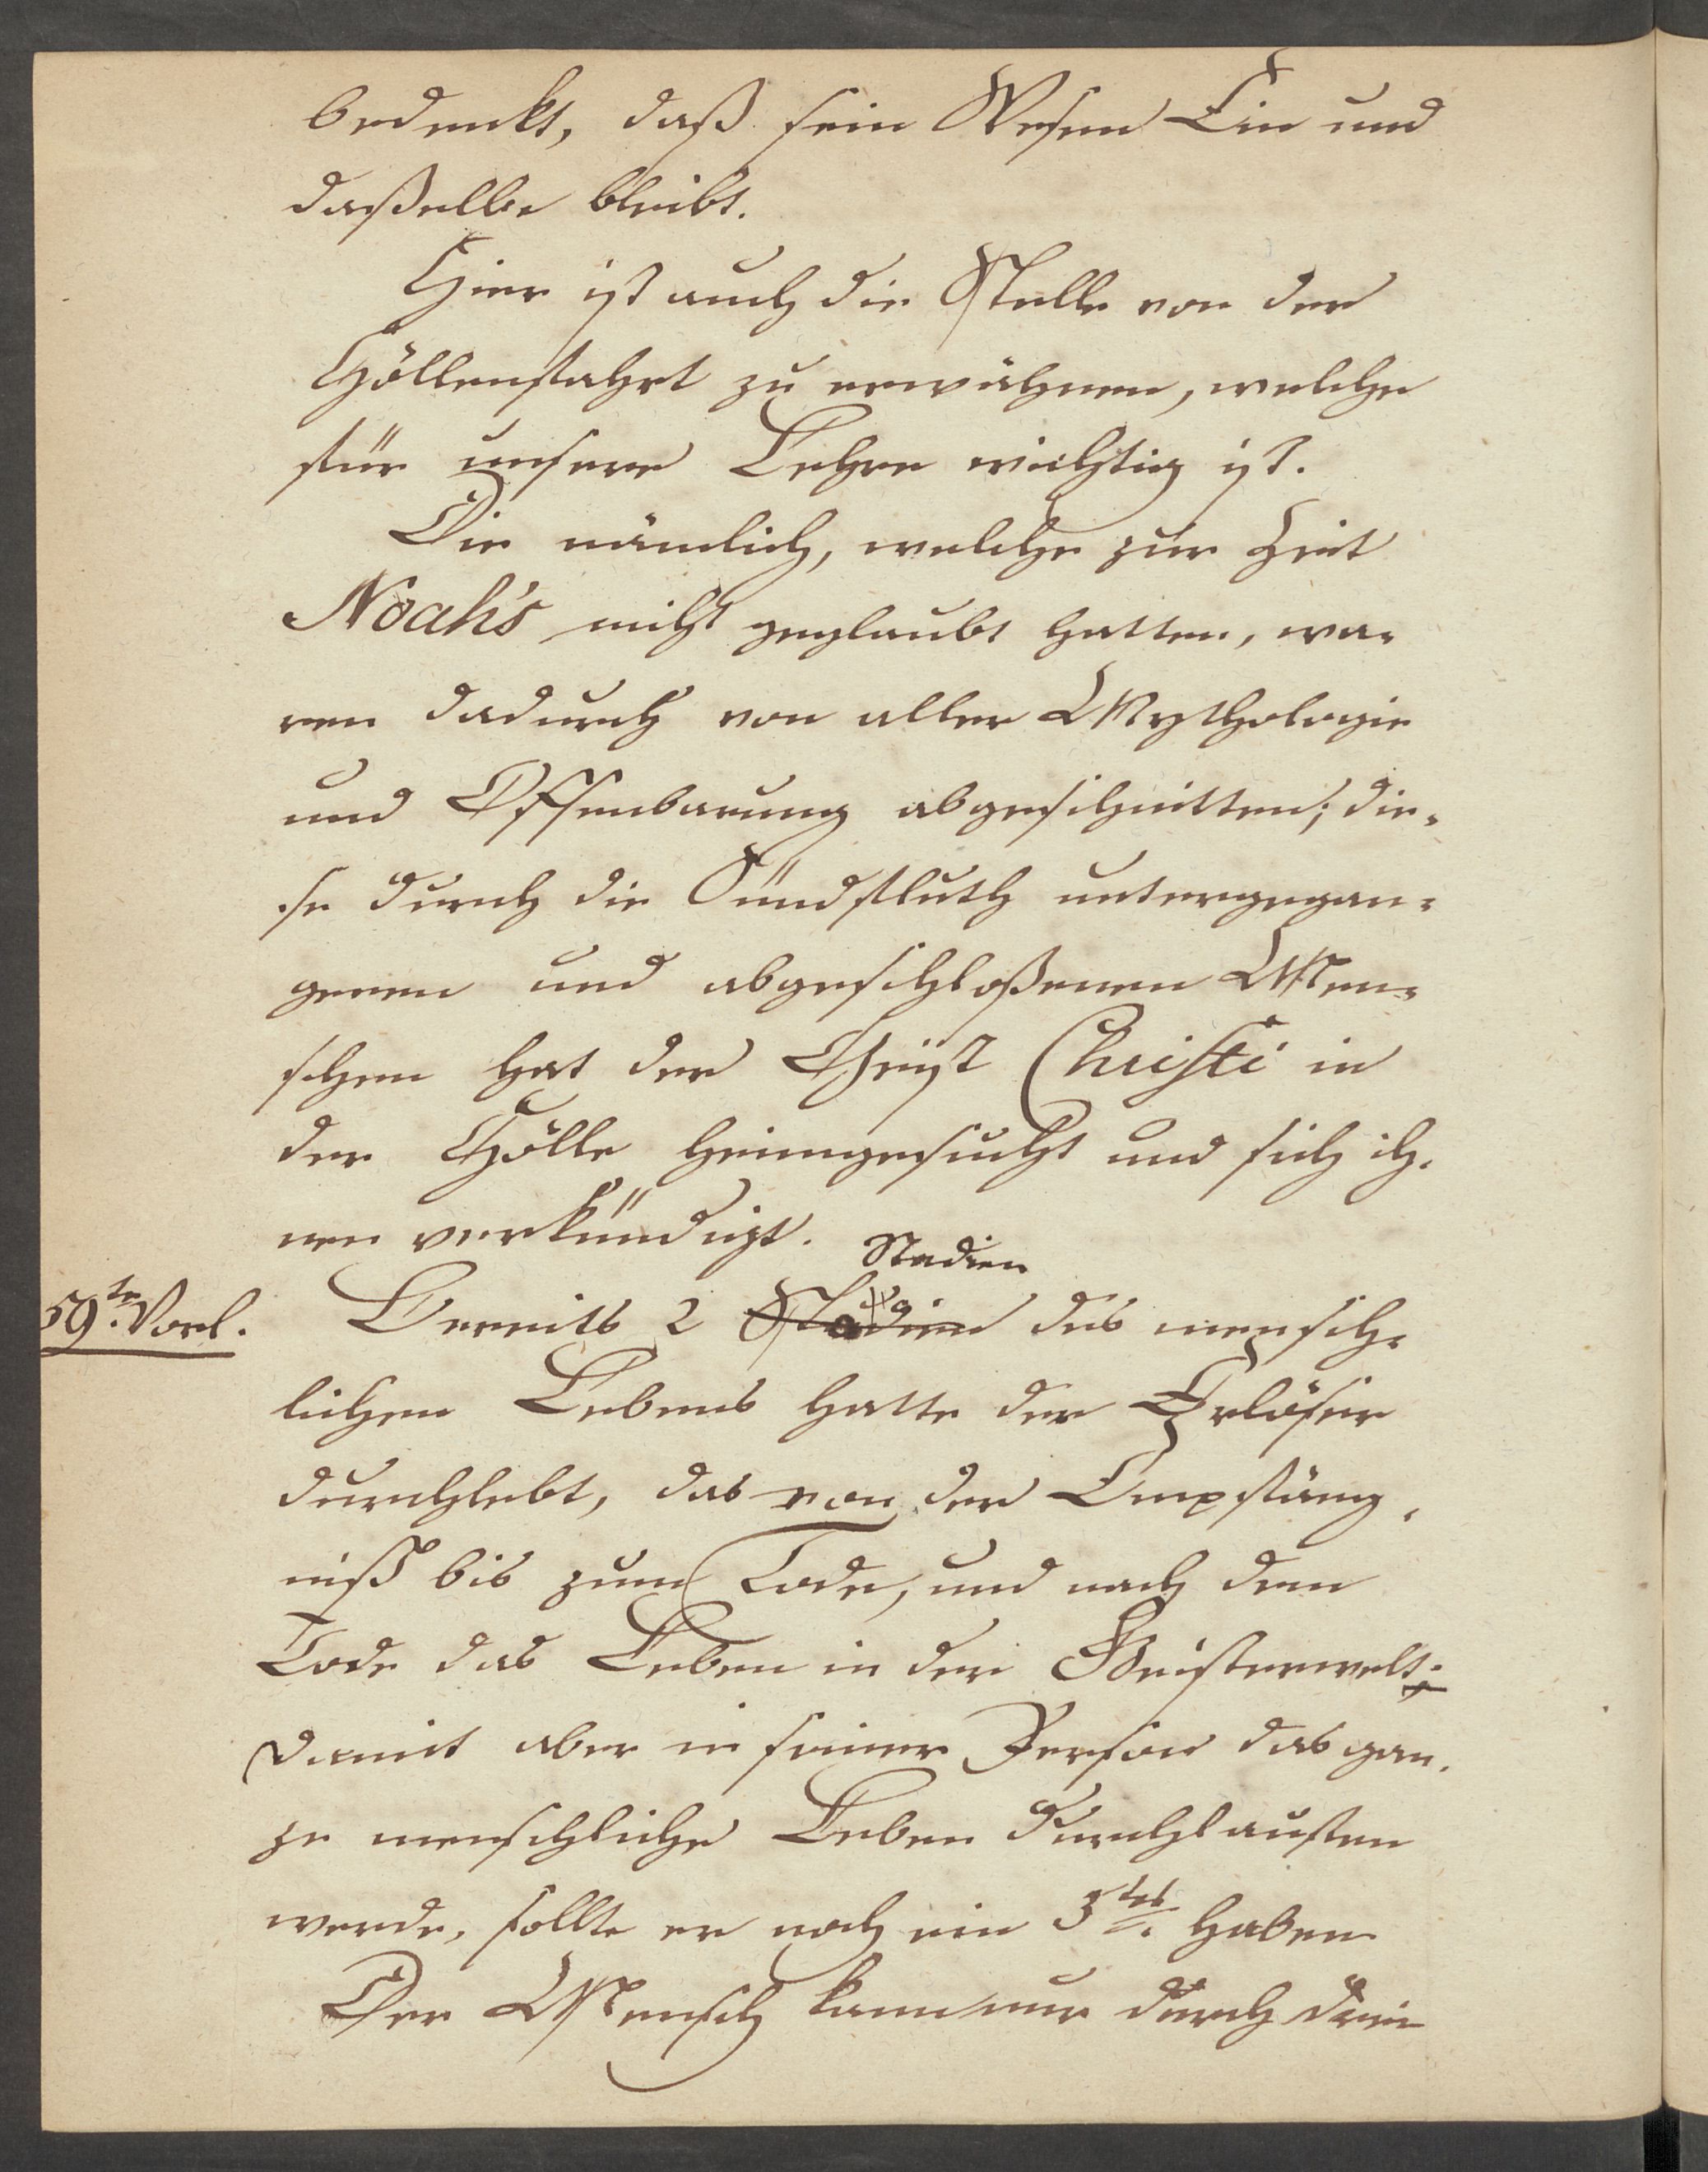 bedenkt, daß sein Wesen Ein und
daßelbe bleibt.
Hier ist auch die Stelle von der
Höllenfahrt zu erwähnen, welche
für unsere Lehre wichtig ist.
Die nämlich, welche zur Zeit
Noah's nicht geglaubt hatten, wa-
ren dadurch von aller Mythologie
und Offenbarung abgeschnitten; die-
se durch die Sündfluth untergegan-
genen und abgeschloßenen Men-
schen hat der Geist Christi in
der Hölle heimgesucht und sich ih-
nen verkündigt.
Stadien
59te. Vorl. Bereits 2 Stadien des mensch-
lichen Lebens hatte der Erlöser
durchlebt, das von der Empfäng-
niß bis zum Tode, und nach dem
Tode das Leben in der Geisterwelt;
damit aber in seiner Person das gan-
ze menschliche Leben durchlaufen
werde, sollte er noch ein 3tes. haben
Der Mensch kann nur durch drei